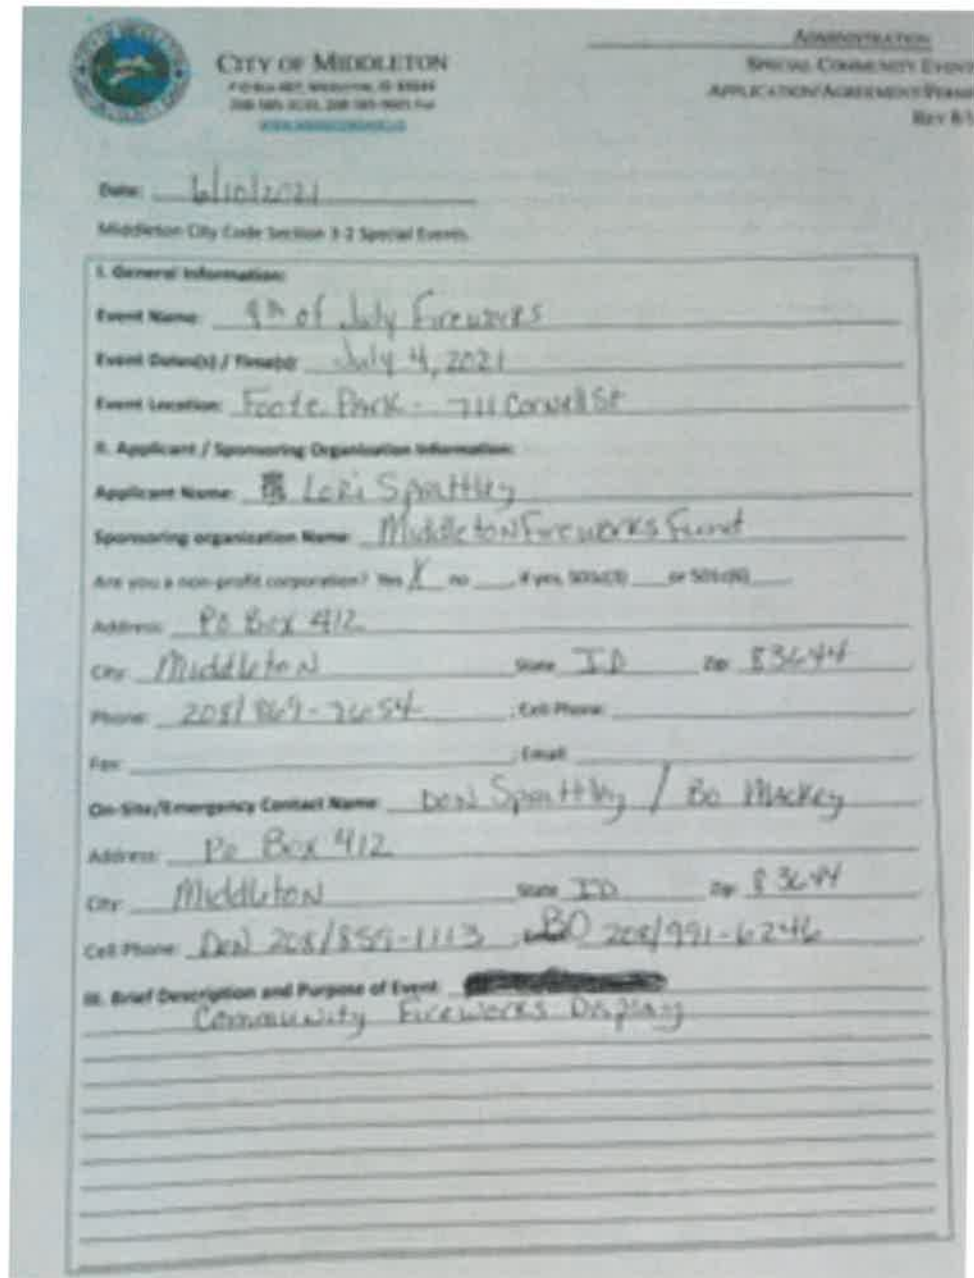 CITY OF MIDDLETON
ADMINISTRATION
SPECIAL COMMUNITY EVENT
APPLICATION/AGREEMENT/PERMIT
Date: 6/10/2021
Middleton City Code Section 3-2 Special Events.
I. General Information:
Event Name: 4th of July Fireworks
Event Dates(s) / Time(s): July 4, 2021
Event Location: Foote Park - 711 Cornell St
II. Applicant / Sponsoring Organization Information:
Applicant Name: Lori
Sponsoring organization Name: Middleton Fireworks Fund
Are you a non-profit corporation? Yes X no ___, if yes, 501c(3) ___ or 501c(6) ___
Address: PO Box 412
City: Middleton State ID Zip 83644
Phone: 208/869-7654 ; Cell Phone:
Fax: ; Email:
On-Site/Emergency Contact Name: / Bo Mackey
Address: Po Box 412
City: Middleton State ID Zip 83644
Cell Phone: 208/859-1113 BO 208/991-6246
III. Brief Description and Purpose of Event:
Community Fireworks Display